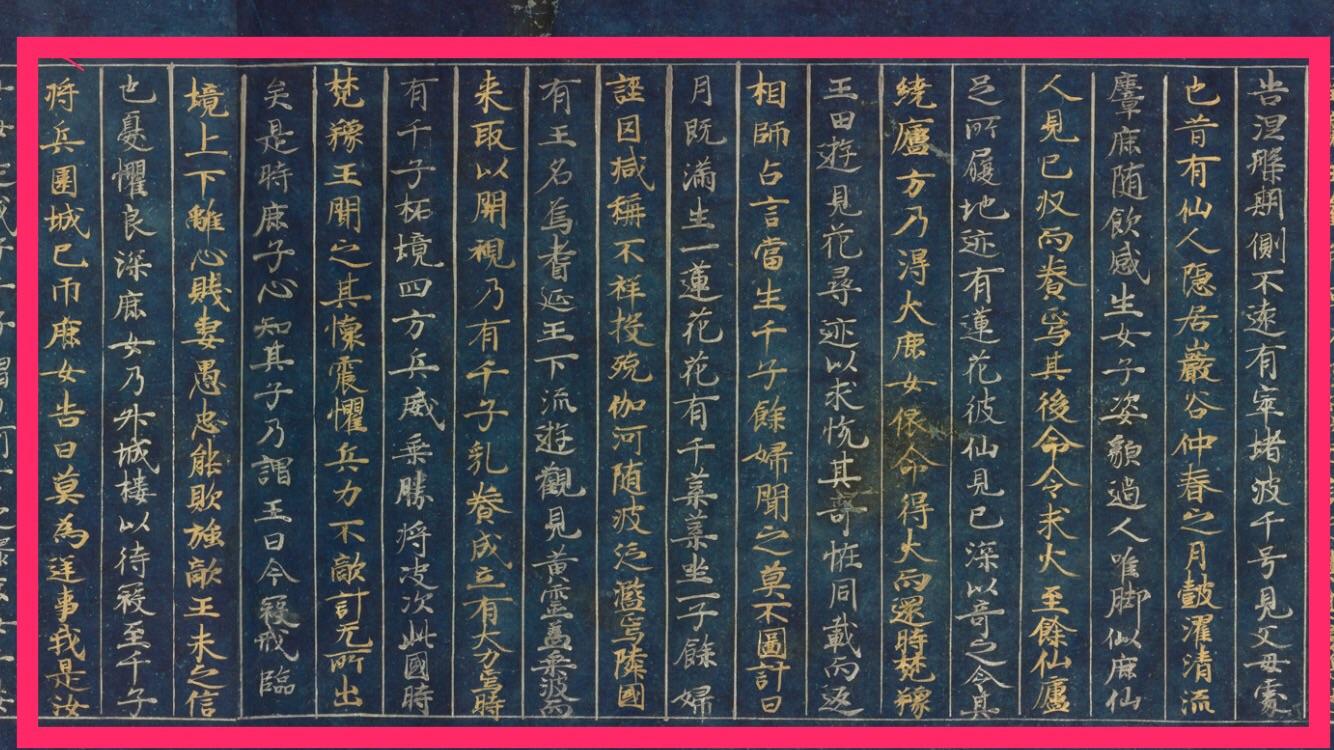 告涅槃期側不遠有窣堵波千号見父母處
也昔有仙人隠居巖谷仲春之月鼓濯清流
麀麻随飲感生女子姿貌過人唯脚似麻仙
人見已収而養焉其後命令求火至餘仙廬
足所履地迹有蓮花彼仙見已深以奇之令其
繞廬方乃得火鹿女依命得火而還時梵豫
王田遊見花尋迹以求悅其奇恠同載而返
相師占言當生千子餘婦聞之莫不圖計日
月既滿生一蓮花花有千葉葉坐一子餘婦
誣因咸稱不祥投殑伽河随波泛濫烏陳國
有王名為耆延王下流遊觀見黃雲蓋乘波而
来取以開視乃有千子乳養成立有大力焉時
有千子拓境四方兵威乗勝将次此國時
梵豫王聞之其懷震懼兵力不敵計无所出
矣是時麻子心知其子乃謂王曰今寇戎臨
境上下離心賤妻愚忠能敗強敵王未之信
也憂懼良深麻女乃外城樓以待寇至千子
将兵圍城已帀麻女告曰莫為逆事我是汝